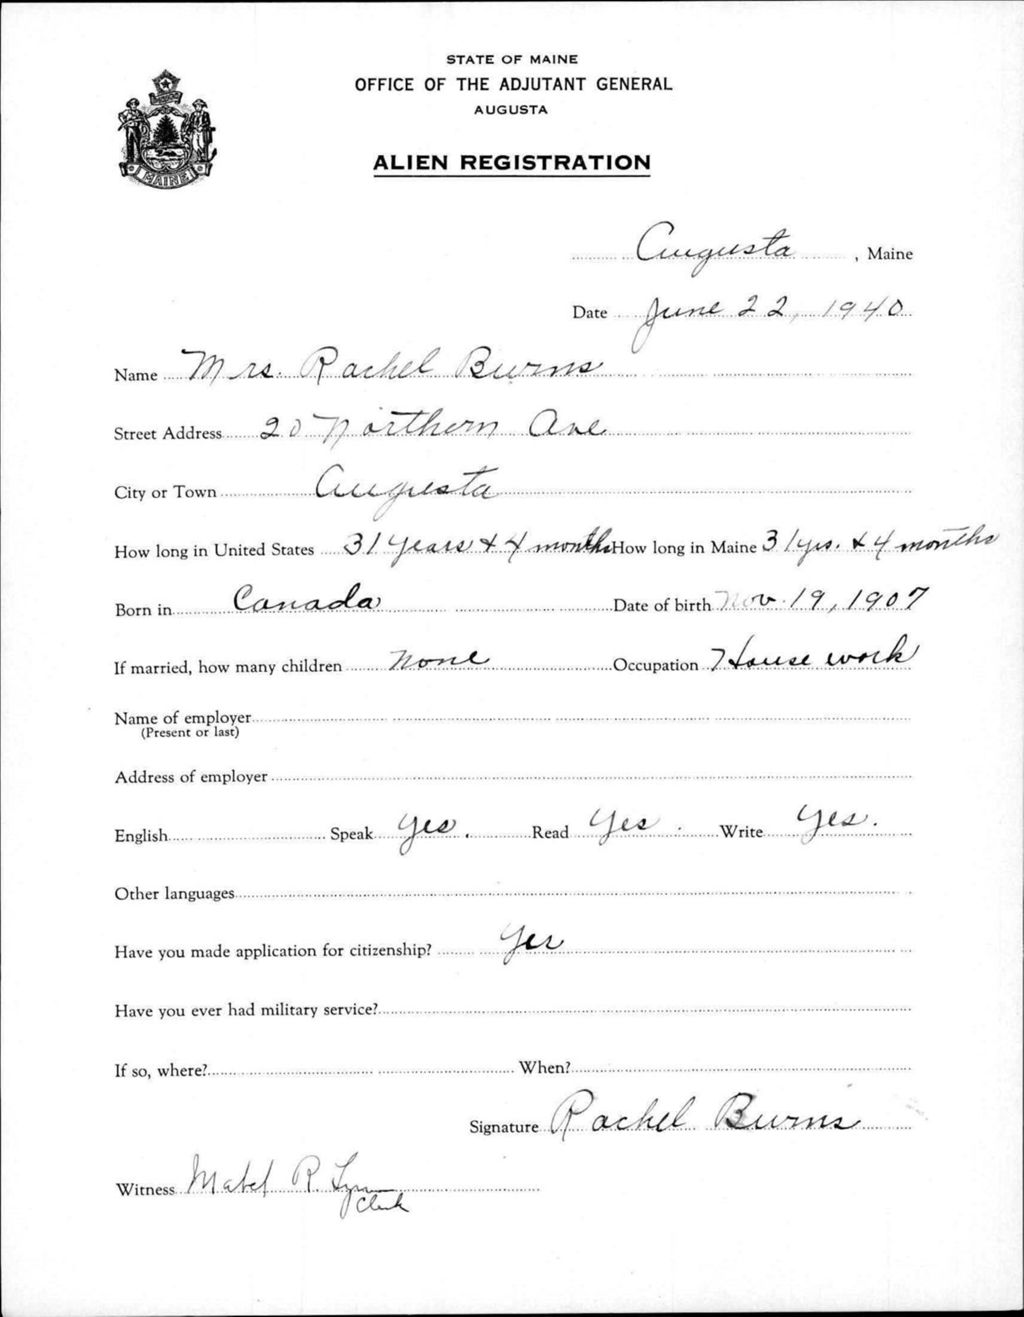 STATE OF MAINE
OFFICE OF THE ADJUTANT GENERAL
AUGUSTA
ALIEN REGISTRATION
MAINE
Augusta, Maine
Date June 22, 1940
Name Mrs. Rachel Burns
Street Address 20 Northern Ave
City or Town Augusta
How long in United States 31 years & 4 months How long in Maine 31 yrs. & 4 months
Born in Canada Date of birth Nov. 19, 1907
If married, how many children None Occupation House work
Name of employer
(Present or last)
Address of employer
English Speak Yes. Read Yes. Write Yes.
Other languages
Have you made application for citizenship? Yes
Have you ever had military service?
If so, where? When?
Signature Rachel Burns
Witness Mabel R.
Clerk